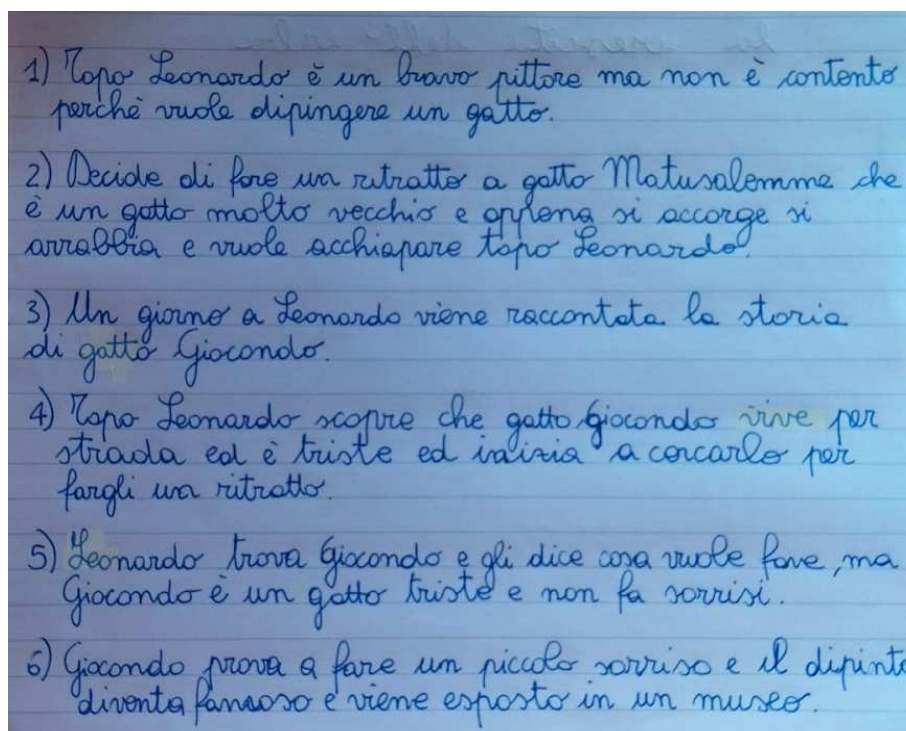 1) Topo Leonardo è un bravo pittore ma non è contento
perchè vuole dipingere un gatto.
2) Decide di fare un ritratto a gatto Matusalemme che
è un gatto molto vecchio e appena si accorge si
arrabbia e vuole acchiapare topo Leonardo.
3) Un giorno a Leonardo viene raccontata la storia
di gatto Giocondo.
4) Topo Leonardo scopre che gatto Giocondo vive per
strada ed è triste ed inizia a cercarlo per
fargli un ritratto.
5) Leonardo trova Giocondo e gli dice cosa vuole fare, ma
Giocondo è un gatto triste e non fa sorrisi.
6) Giocondo prova a fare un piccolo sorriso e il dipinto
diventa famoso e viene esposto in un museo.